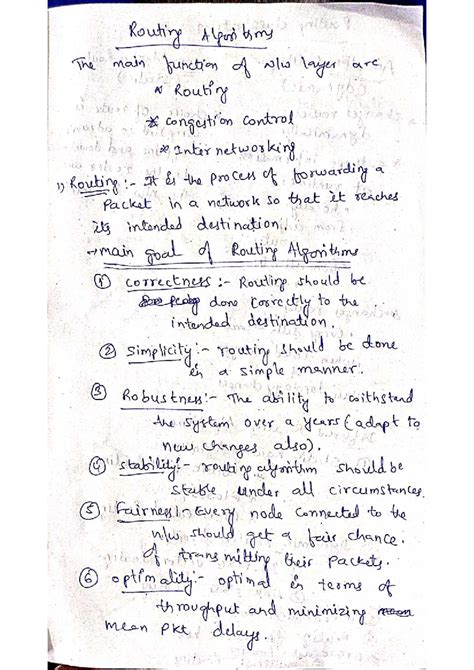 Routing Algorithms
The main function of N/w layer are
* Routing
* congestion control
* Internetworking
1) Routing :- It is the process of forwarding a
Packet in a network so that it reaches
its intended destination.
→ main goal of Routing Algorithms
① correctness :- Routing should be
done correctly to the
intended destination.
② simplicity :- routing should be done
in a simple manner.
③ Robustness :- The ability to withstand
the system over a years (adapt to
new changes also).
④ stability :- routing algorithm should be
stable under all circumstances.
⑤ Fairness :- Every node connected to the
n/w should get a fair chance.
of transmitting their packets.
⑥ optimality :- optimal in terms of
throughput and minimizing
mean pkt delays.